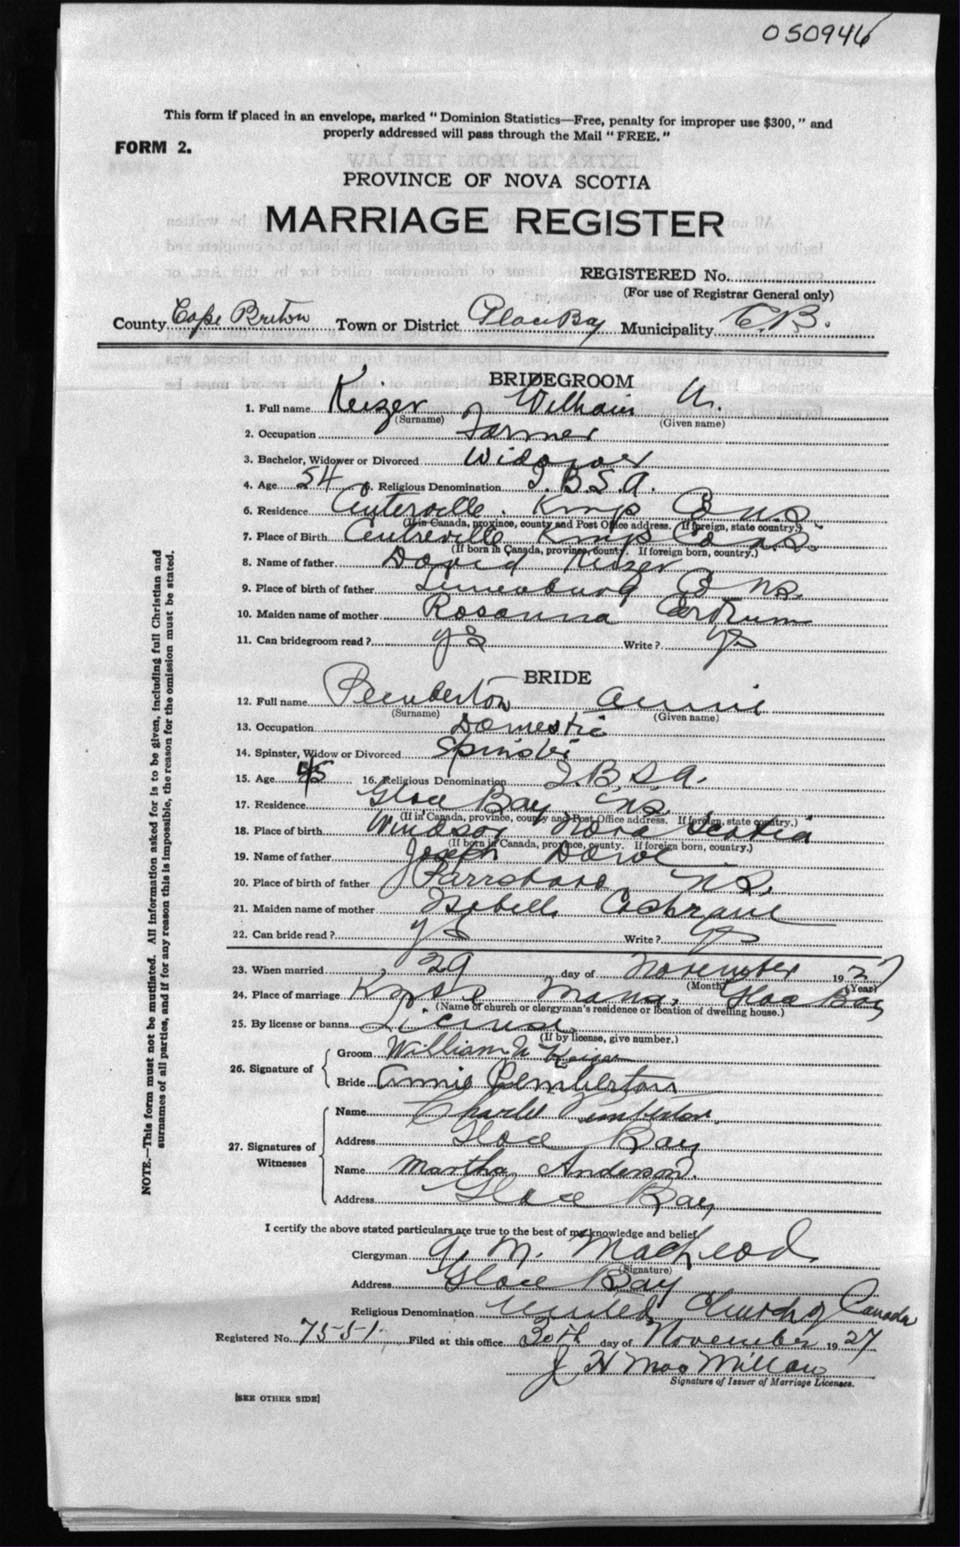 050946
This form if placed in an envelope, marked "Dominion Statistics—Free, penalty for improper use $300," and
properly addressed will pass through the Mail "FREE."
FORM 2.
PROVINCE OF NOVA SCOTIA
MARRIAGE REGISTER
REGISTERED No.
(For use of Registrar General only)
County Cape Breton Town or District Glace Bay Municipality C.B.
BRIDEGROOM
1. Full name Keizer William N.
(Surname) (Given name)
2. Occupation Farmer
3. Bachelor, Widower or Divorced Widower
4. Age 54 5. Religious Denomination I.B.S.A.
6. Residence Centerville. Kings Co N.S
(If in Canada, province, county and Post Office address. If foreign, state country.)
7. Place of Birth Centreville Kings Co N.S.
(If born in Canada, province, county. If foreign born, country.)
8. Name of father David Keizer
9. Place of birth of father Lunenburg Co NS.
10. Maiden name of mother Rosanna
11. Can bridegroom read? yes Write? yes
BRIDE
12. Full name Pemberton Annie
(Surname) (Given name)
13. Occupation Domestic
14. Spinster, Widow or Divorced Spinster
15. Age 45 16. Religious Denomination I.B.S.A.
17. Residence Glace Bay NS.
(If in Canada, province, county and Post Office address. If foreign, state country.)
18. Place of birth Windsor Nova Scotia
(If born in Canada, province, county. If foreign born, country.)
19. Name of father Joseph
20. Place of birth of father Parrsboro N.S.
21. Maiden name of mother Isabell Cochrane
22. Can bride read? yes Write? yes
23. When married 29 day of November 1927
(Month) (Year)
24. Place of marriage Knox Manse Glace Bay
(Name of church or clergyman's residence or location of dwelling house.)
25. By license or banns License
(If by license, give number.)
26. Signature of
Groom William N Keizer
Bride Annie Pemberton
27. Signatures of Witnesses
Name Charlie Pemberton
Address Glace Bay
Name Martha Anderson.
Address Glace Bay
I certify the above stated particulars are true to the best of my knowledge and belief.
Clergyman A. M. MacLeod
(Signature)
Address Glace Bay
Religious Denomination United Church of Canada
Registered No. 7551 Filed at this office 30th day of November 1927
J H MacMillan
Signature of Issuer of Marriage Licenses.
[SEE OTHER SIDE]
NOTE.—This form must not be mutilated. All information asked for is to be given, including full Christian and
surnames of all parties, and if for any reason this is impossible, the reason for the omission must be stated.